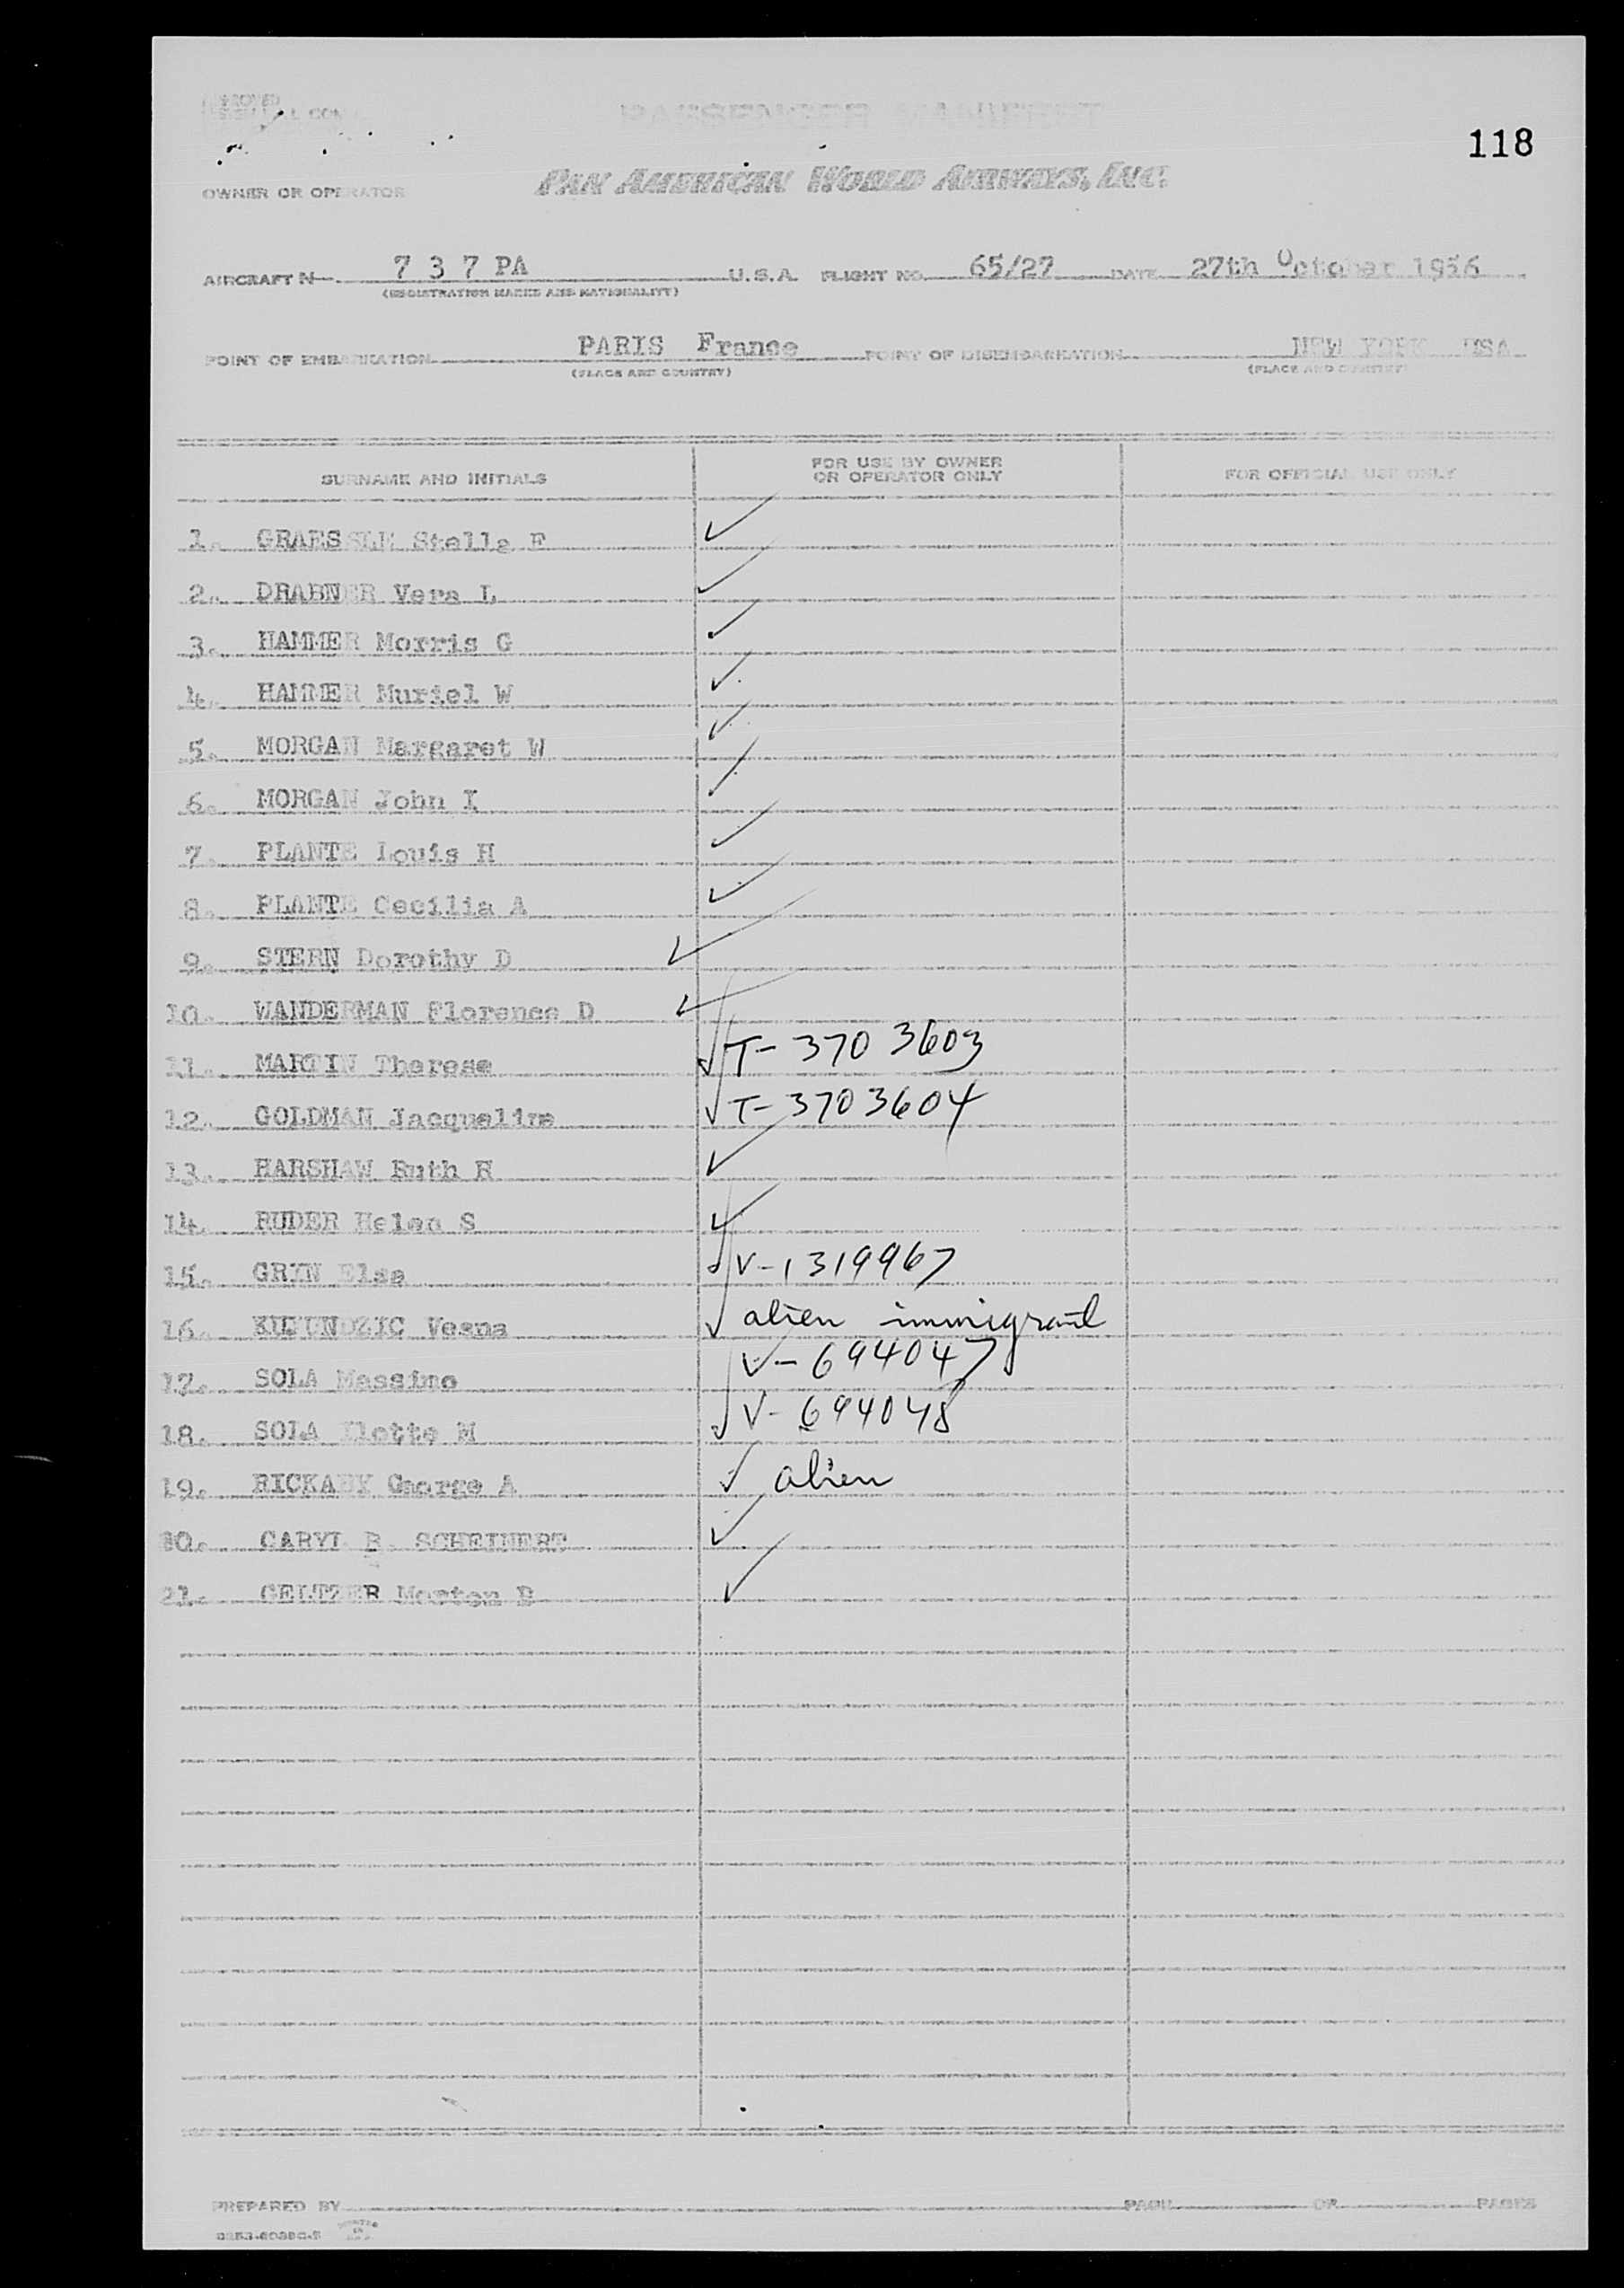 PASSENGER MANIFEST
118
OWNER OR OPERATOR PAN AMERICAN WORLD AIRWAYS, INC.
AIRCRAFT N 7 3 7 PA U.S.A. FLIGHT NO. 65/27 DATE 27th October 1956
(REGISTRATION MARKS AND NATIONALITY)
POINT OF EMBARKATION PARIS France POINT OF DISEMBARKATION NEW YORK USA
(PLACE AND COUNTRY) (PLACE AND COUNTRY)
SURNAME AND INITIALS FOR USE BY OWNER OR OPERATOR ONLY FOR OFFICIAL USE ONLY
1. GRAESSLE Stella F ✓
2. DRABNER Vera L ✓
3. HAMMER Morris G ✓
4. HAMMER Muriel W ✓
5. MORGAN Margaret W ✓
6. MORGAN John I ✓
7. PLANTE Louis H ✓
8. PLANTE Cecilia A ✓
9. STERN Dorothy D ✓
10. WANDERMAN Florence D ✓
11. MARTIN Therese ✓ T-3703603
12. GOLDMAN Jacqueline ✓ T-3703604
13. HARSHAW Ruth R ✓
14. RUDER Helen S ✓
15. GRIN Elsa ✓ V-1319967
16. Vesna ✓ alien immigrant
17. SOLA Massimo ✓ V-694047
18. SOLA M ✓ V-694048
19. RICKABY George A ✓ alien
20. CARYL B. SCHEINERT ✓
21. GELTZER Morton B ✓
PREPARED BY PAGE OF PAGES